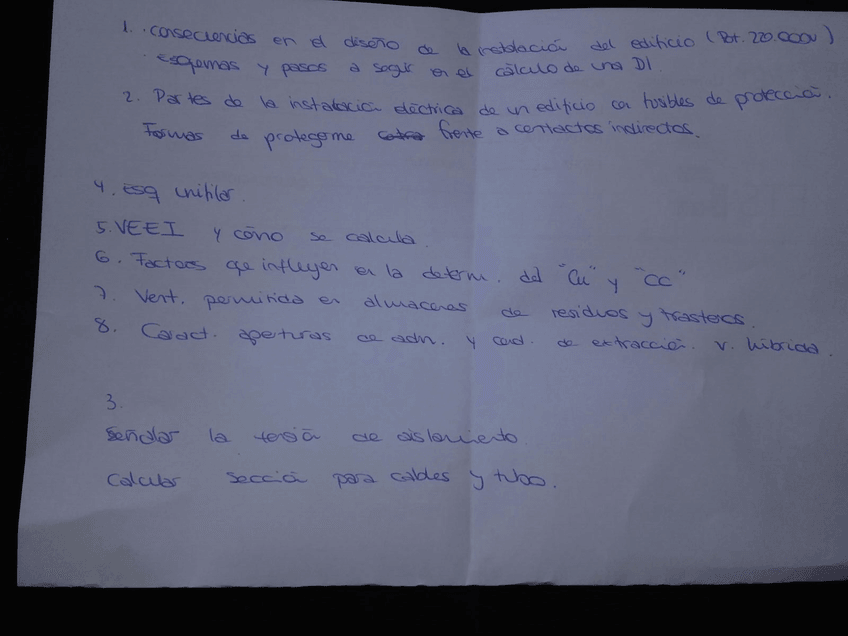 1. consecuencias en el diseño de la instalación del edificio (Pot. 220.000v)
Esquemas y pasos a seguir en el cálculo de una DI.
2. Partes de la instalación eléctrica de un edificio con fusibles de protección.
Formas de protegerme frente a contactos indirectos.
4. esq unifilar.
5. VEEI y cómo se calcula.
6. Factores que influyen en la determ. del "Cu" y "CC"
7. Vent. permitida en almacenes de residuos y trasteros.
8. Caract. aperturas de adm. y cond. de extracción. v. híbrida.
3.
Señalar la tensión de aislamiento
Calcular sección para cables y tubo.